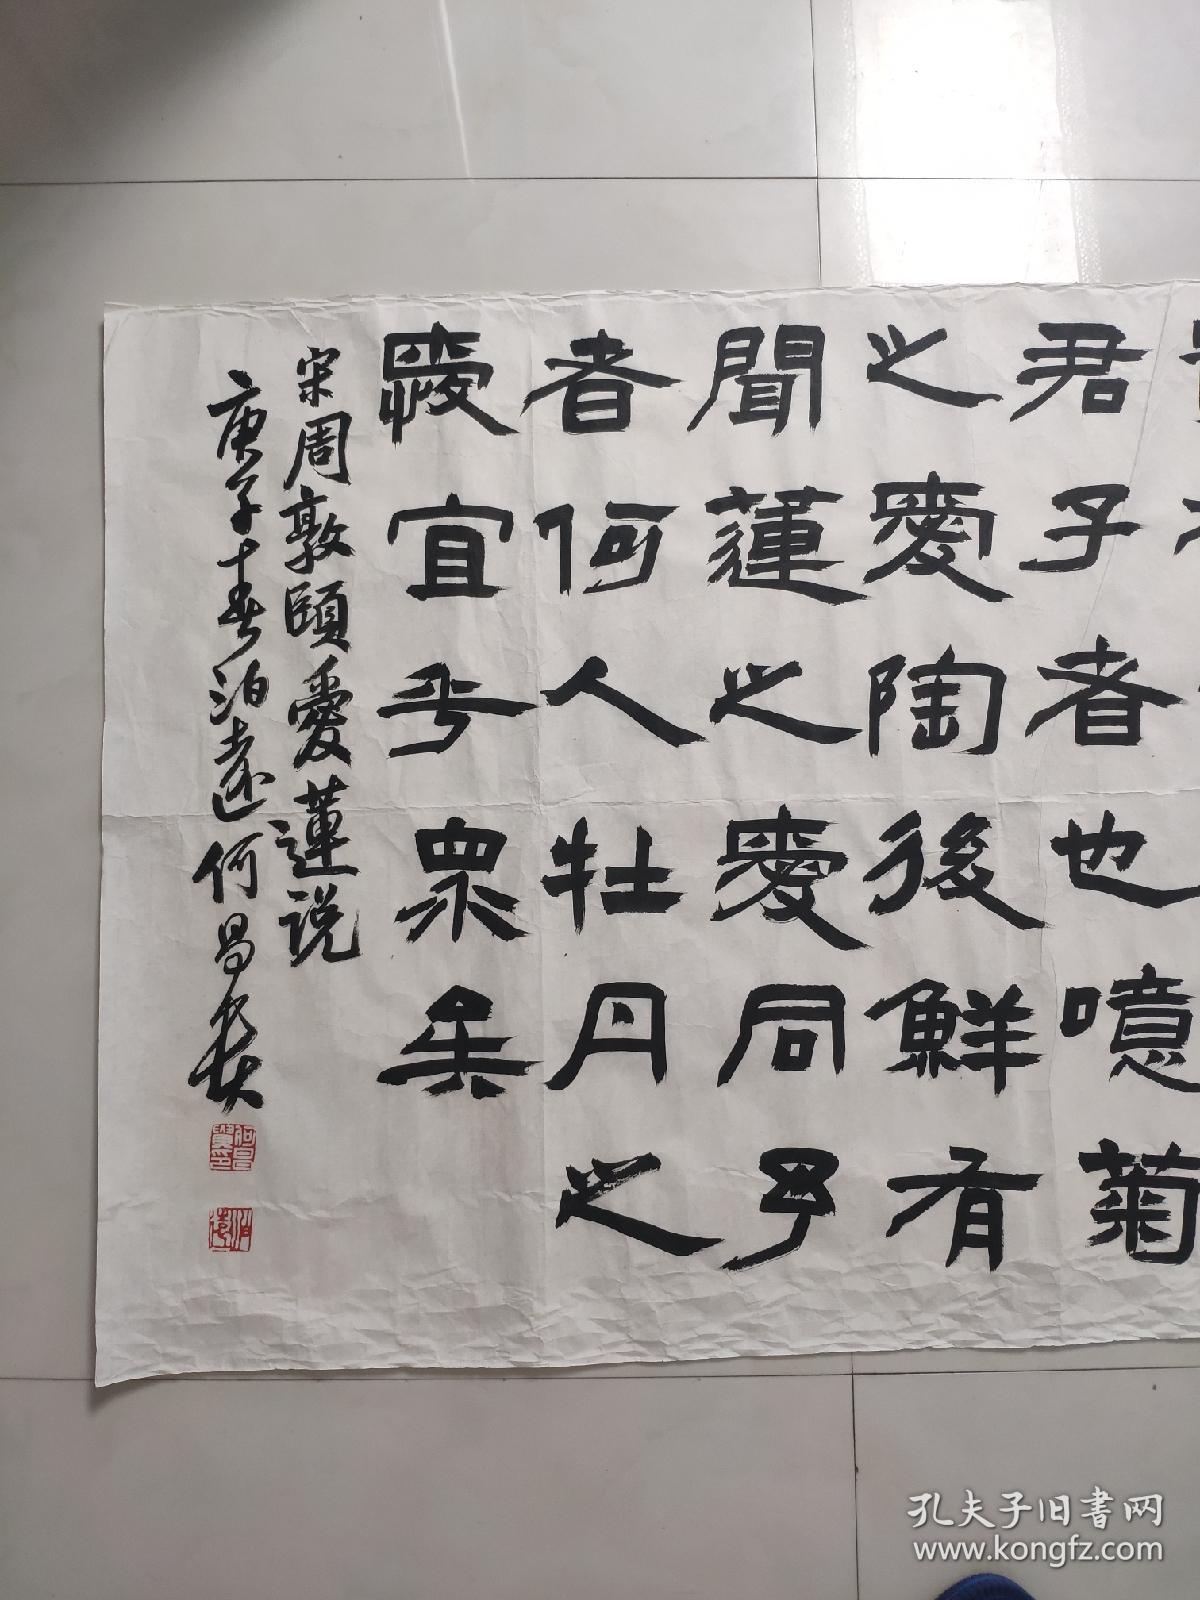 君子者也噫菊
之愛陶後鮮有
聞蓮之愛同予
者何人牡丹之
愛宜乎眾矣
宋周敦頤愛蓮说
庚子春泊遠何昌
泊遠
孔夫子旧書网
www.kongfz.com